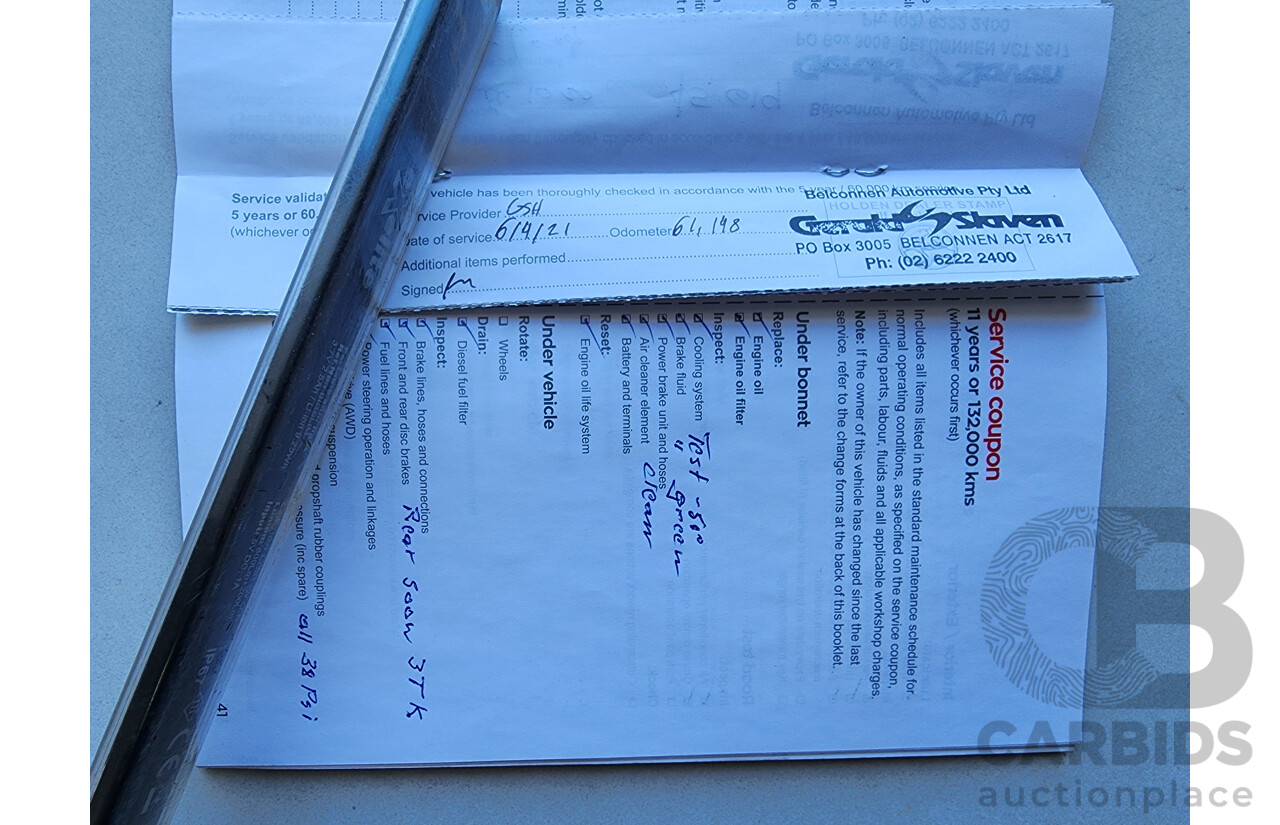 Service valida
5 years or 60,
(whichever o
vehicle has been thoroughly checked in accordance with the 5 year / 60,000
rvice Provider GSH
ate of service 6/4/21 Odometer 61,148
Additional items performed
Signed
Belconnen Automotive Pty Ltd
HOLDEN DEALER STAMP
Gerald Slaven
PO Box 3005 BELCONNEN ACT 2617
Ph: (02) 6222 2400
Service coupon
11 years or 132,000 kms
(whichever occurs first)
Includes all items listed in the standard maintenance schedule for
normal operating conditions, as specified on the service coupon,
including parts, labour, fluids and all applicable workshop charges.
Note: If the owner of this vehicle has changed since the last
service, refer to the change forms at the back of this booklet.
Under bonnet
Replace:
Engine oil
Engine oil filter
Inspect:
Cooling system Test -50°
Brake fluid " green
Power brake unit and hoses
Air cleaner element clean
Battery and terminals
Reset:
Engine oil life system
Under vehicle
Rotate:
Wheels
Drain:
Diesel fuel filter
Inspect:
Brake lines, hoses and connections
Front and rear disc brakes Rear soon 3TK
Fuel lines and hoses
Power steering operation and linkages
(AWD)
suspension
propshaft rubber couplings
ssure (inc spare) all 38 Psi
41
CB
CARBIDS
auctionplace